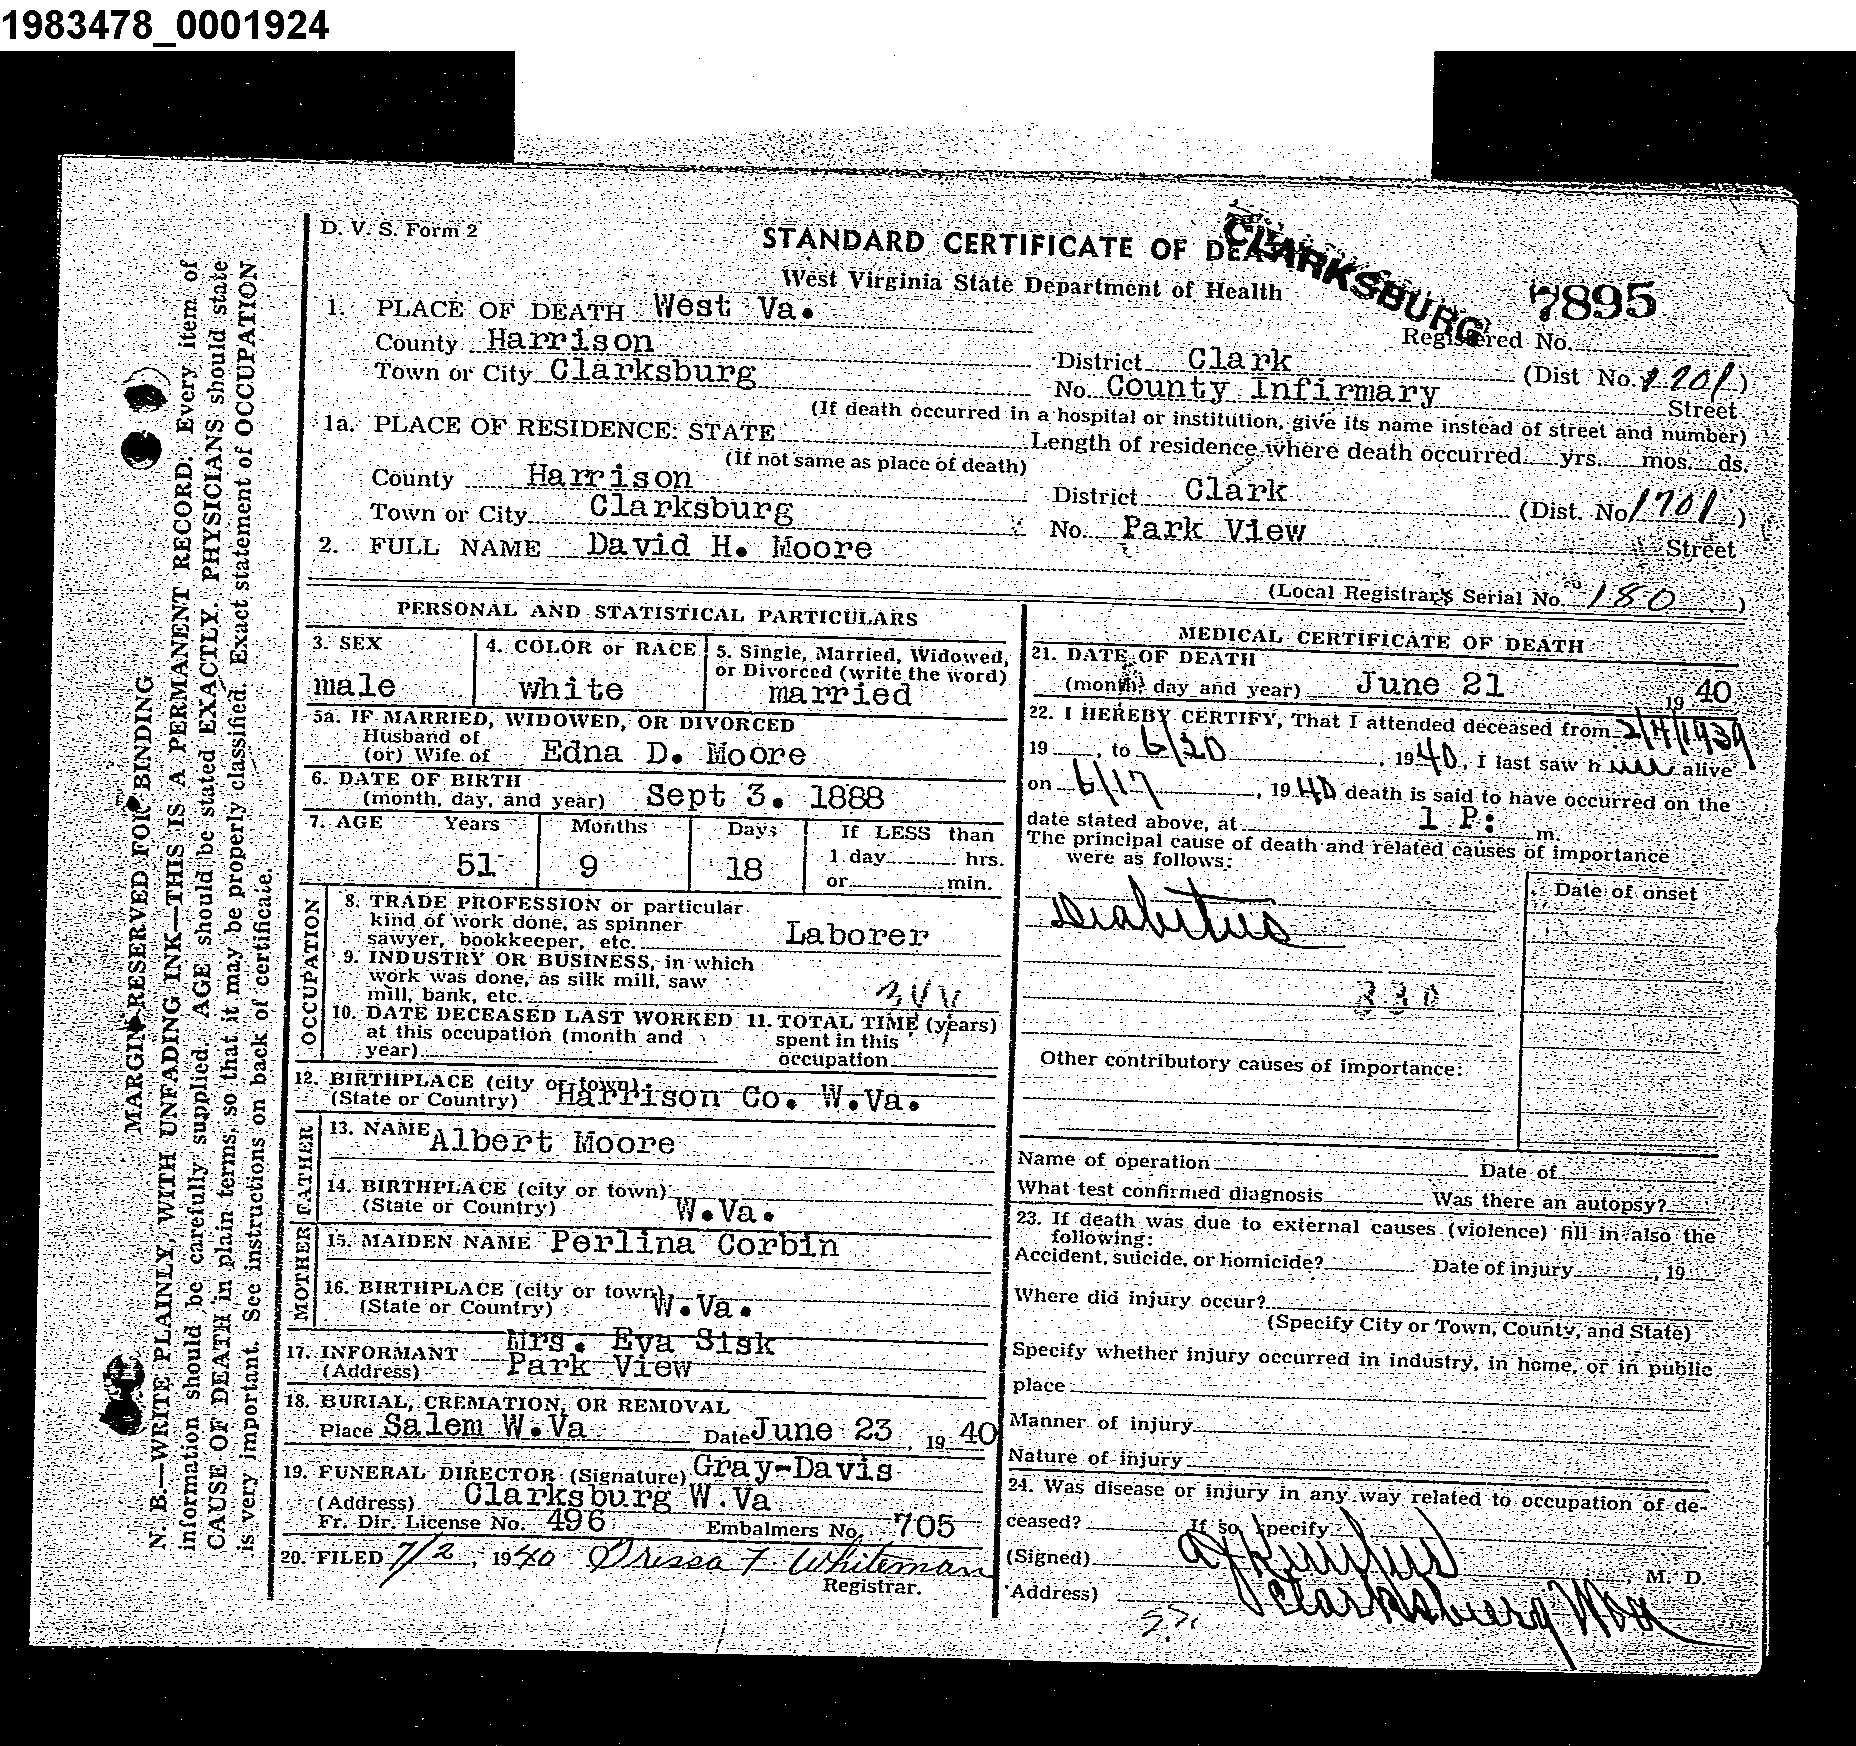 1983478_0001924
D. V. S. Form 2
STANDARD CERTIFICATE OF DEA
CLARKSBURG
West Virginia State Department of Health
7895
1. PLACE OF DEATH West Va.
Registered No.
County Harrison
District Clark (Dist No. 1701)
Town or City Clarksburg
No. County Infirmary Street
(If death occurred in a hospital or institution, give its name instead of street and number)
1a. PLACE OF RESIDENCE: STATE
Length of residence where death occurred yrs. mos. ds.
(If not same as place of death)
County Harrison
District Clark (Dist. No 1701)
Town or City Clarksburg
No. Park View Street
2. FULL NAME David H. Moore
(Local Registrar's Serial No. 180)
PERSONAL AND STATISTICAL PARTICULARS
3. SEX
male
4. COLOR or RACE
white
5. Single, Married, Widowed,
or Divorced (write the word)
married
5a. IF MARRIED, WIDOWED, OR DIVORCED
Husband of
(or) Wife of Edna D. Moore
6. DATE OF BIRTH
(month, day, and year) Sept 3. 1888
7. AGE Years Months Days If LESS than
51 9 18 1 day hrs.
or min.
OCCUPATION
8. TRADE PROFESSION or particular
kind of work done, as spinner
sawyer, bookkeeper, etc. Laborer
9. INDUSTRY OR BUSINESS, in which
work was done, as silk mill, saw
mill, bank, etc.
10. DATE DECEASED LAST WORKED
at this occupation (month and
year)
11. TOTAL TIME (years)
spent in this
occupation
12. BIRTHPLACE (city or town)
(State or Country) Harrison Co. W.Va.
FATHER
13. NAME Albert Moore
14. BIRTHPLACE (city or town)
(State or Country) W.Va.
MOTHER
15. MAIDEN NAME Perlina Corbin
16. BIRTHPLACE (city or town)
(State or Country) W.Va.
17. INFORMANT Mrs. Eva Sisk
(Address) Park View
18. BURIAL, CREMATION, OR REMOVAL
Place Salem W.Va Date June 23, 19 40
19. FUNERAL DIRECTOR (Signature) Gray-Davis
(Address) Clarksburg W.Va
Fr. Dir. License No. 496 Embalmers No. 705
20. FILED 7/2, 1940 Dressa F. Whiteman
Registrar.
MEDICAL CERTIFICATE OF DEATH
21. DATE OF DEATH
(month, day and year) June 21 19 40
22. I HEREBY CERTIFY, That I attended deceased from 2/4/1939
19 , to 6/20, 1940, I last saw him alive
on 6/17, 1940 death is said to have occurred on the
date stated above, at 1 P: m.
The principal cause of death and related causes of importance
were as follows:
Date of onset
Diabetus
330
Other contributory causes of importance:
Name of operation Date of
What test confirmed diagnosis Was there an autopsy?
23. If death was due to external causes (violence) fill in also the
following:
Accident, suicide, or homicide? Date of injury , 19
Where did injury occur?
(Specify City or Town, County, and State)
Specify whether injury occurred in industry, in home, or in public
place
Manner of injury
Nature of injury
24. Was disease or injury in any way related to occupation of de-
ceased? If so, specify
(Signed) M. D.
(Address) Clarksburg W Va
MARGIN RESERVED FOR BINDING
N. B.—WRITE PLAINLY, WITH UNFADING INK—THIS IS A PERMANENT RECORD. Every item of
information should be carefully supplied. AGE should be stated EXACTLY. PHYSICIANS should state
CAUSE OF DEATH in plain terms, so that it may be properly classified. Exact statement of OCCUPATION
is very important. See instructions on back of certificate.